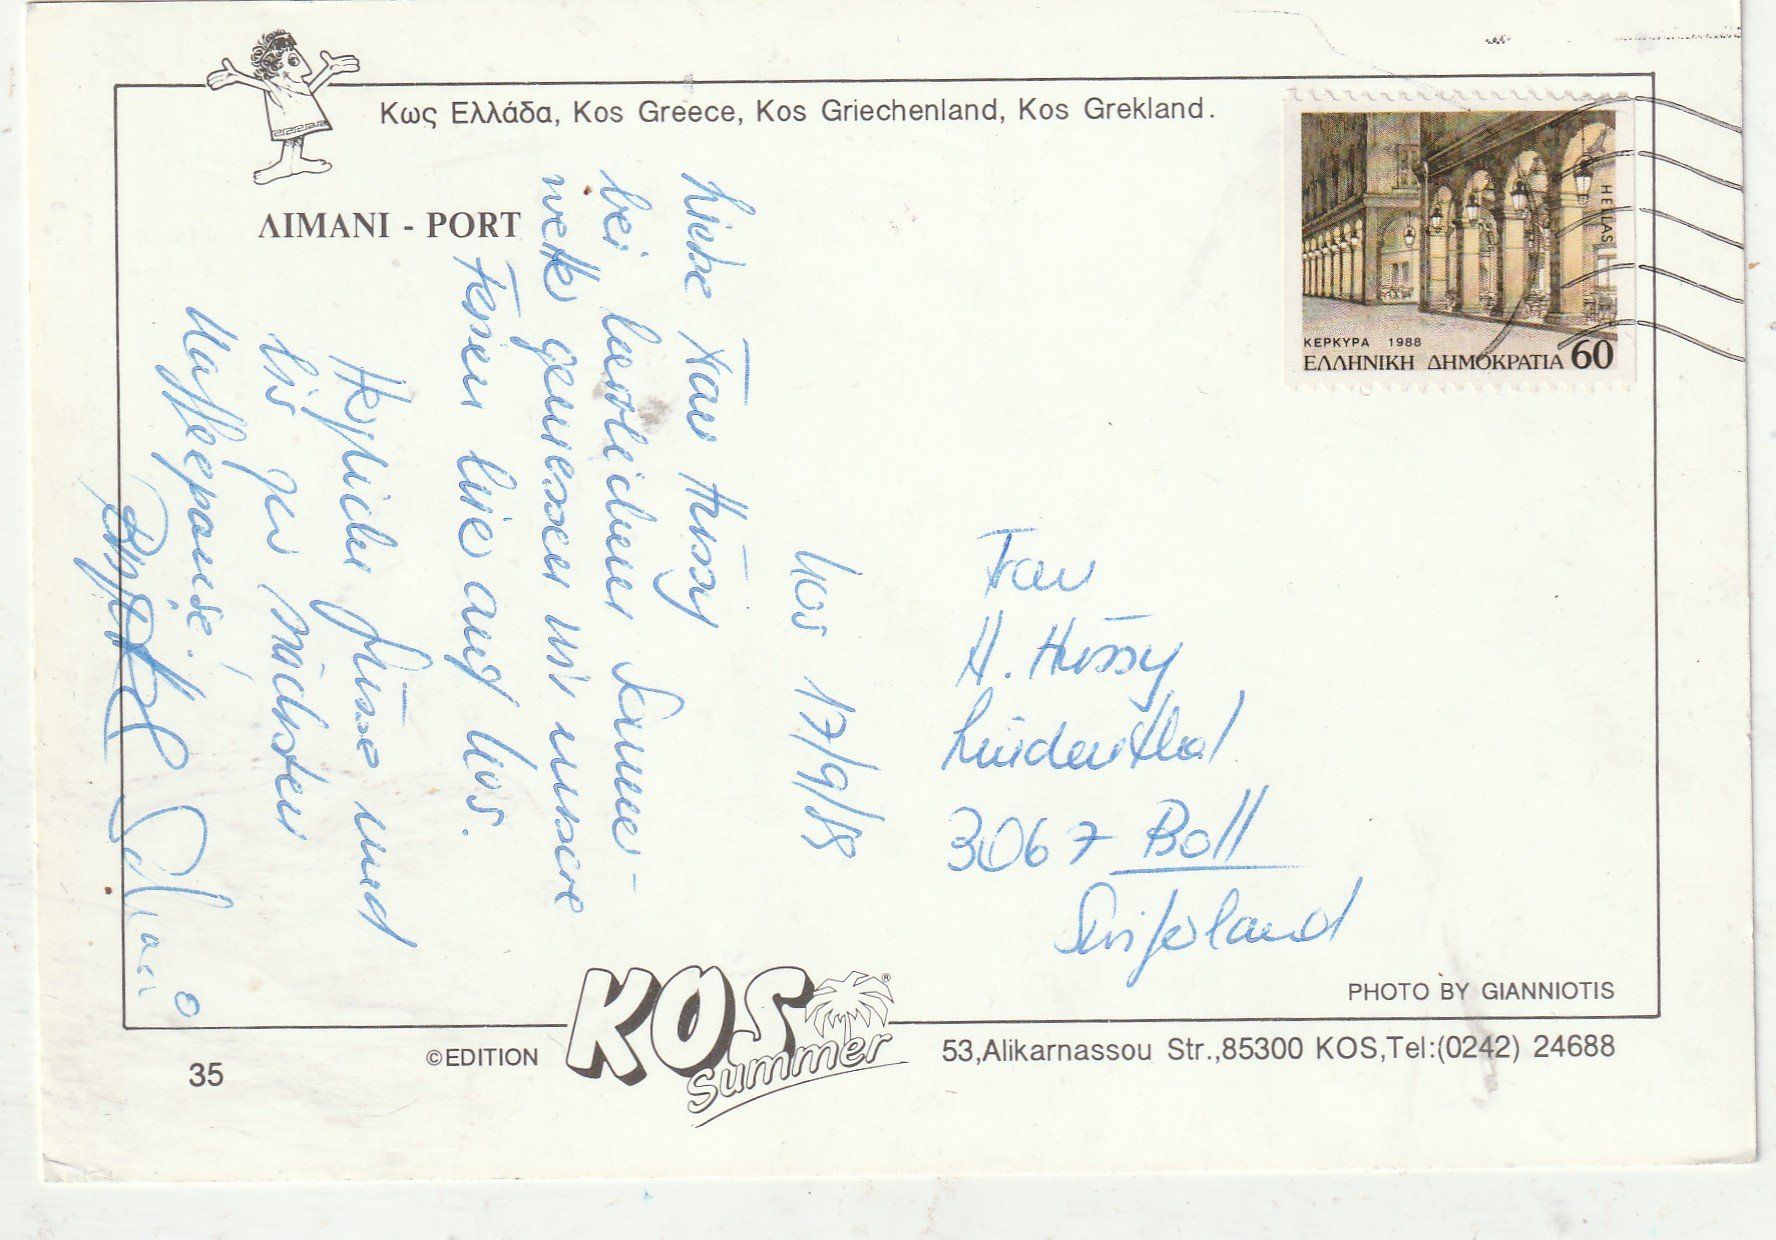 Κως Ελλάδα, Kos Greece, Kos Griechenland, Kos Grekland.
ΛΙΜΑΝΙ - PORT
HELLAS
ΚΕΡΚΥΡΑ 1988
ΕΛΛΗΝΙΚΗ ΔΗΜΟΚΡΑΤΙΑ 60
Kos 17/9/88
Liebe Frau Hüssy
bei herrlichem Sommer-
wetter geniessen wir unsere
Ferien hier auf Kos.
Herzliche Grüsse und
bis zur nächsten
Kaffeepause!
Frau
H. Hüssy
Lindenthal
3067 Boll
Switzerland
PHOTO BY GIANNIOTIS
©EDITION
KOS ®
Summer
53,Alikarnassou Str.,85300 KOS,Tel:(0242) 24688
35